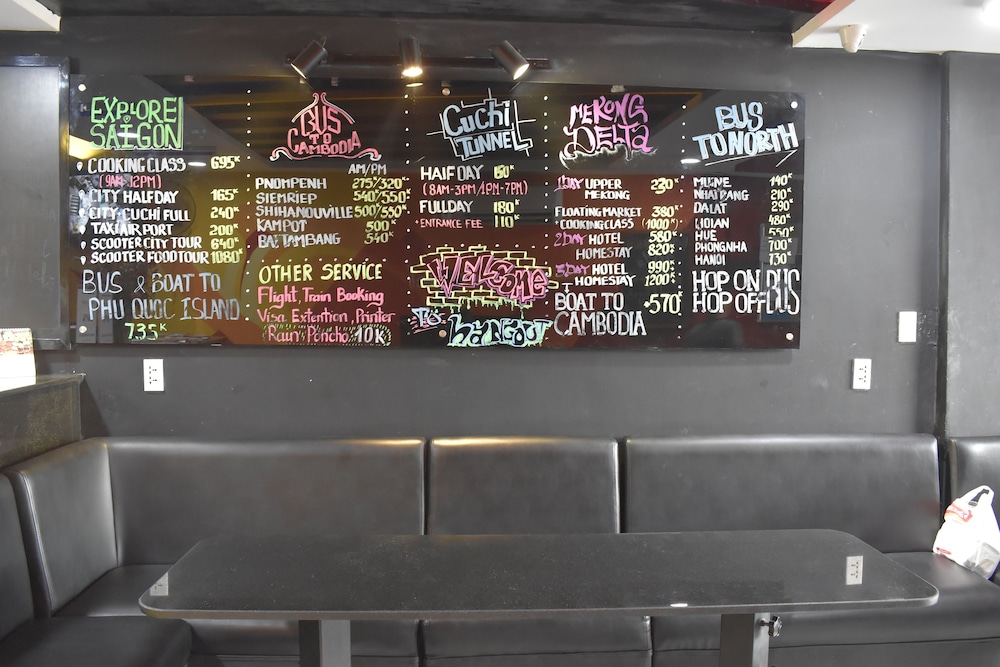 EXPLORE
SAIGON
COOKING CLASS 695K
(9AM-12PM)
CITY HALFDAY 165K
CITY-CUCHI FULL 240K
TAXI AIRPORT 200K
SCOOTER CITY TOUR 640K
SCOOTER FOOD TOUR 1080K
BUS & BOAT TO
PHU QUOC ISLAND
735K
BUS
TO
CAMBODIA
AM/PM
PNOMPENH 275/320K
SIEMRIEP 540/550K
SHIHANOUVILLE 500/550K
KAMPOT 500K
BATTAMBANG 540K
OTHER SERVICE
Flight, Train Booking
Visa Extention, Printer
Rain Poncho 10K
CuChi
TUNNEL
HALF DAY 150K
(8AM-3PM/1PM-7PM)
FULLDAY 180K
*ENTRANCE FEE 110K
WELCOME
To
hangout
MEKONG
DELTA
1DAY UPPER 230K
MEKONG
FLOATING MARKET 380K
COOKING CLASS (1000K)
2DAY HOTEL 580K
HOMESTAY 820K
3DAY HOTEL 990K
HOMESTAY 1200K
BOAT TO 570K
CAMBODIA
BUS
TO NORTH
MUINE 140K
NHATRANG 210K
DALAT 290K
HOIAN 480K
HUE 550K
PHONGNHA 700K
HANOI 730K
HOP ON BUS
HOP OFF BUS